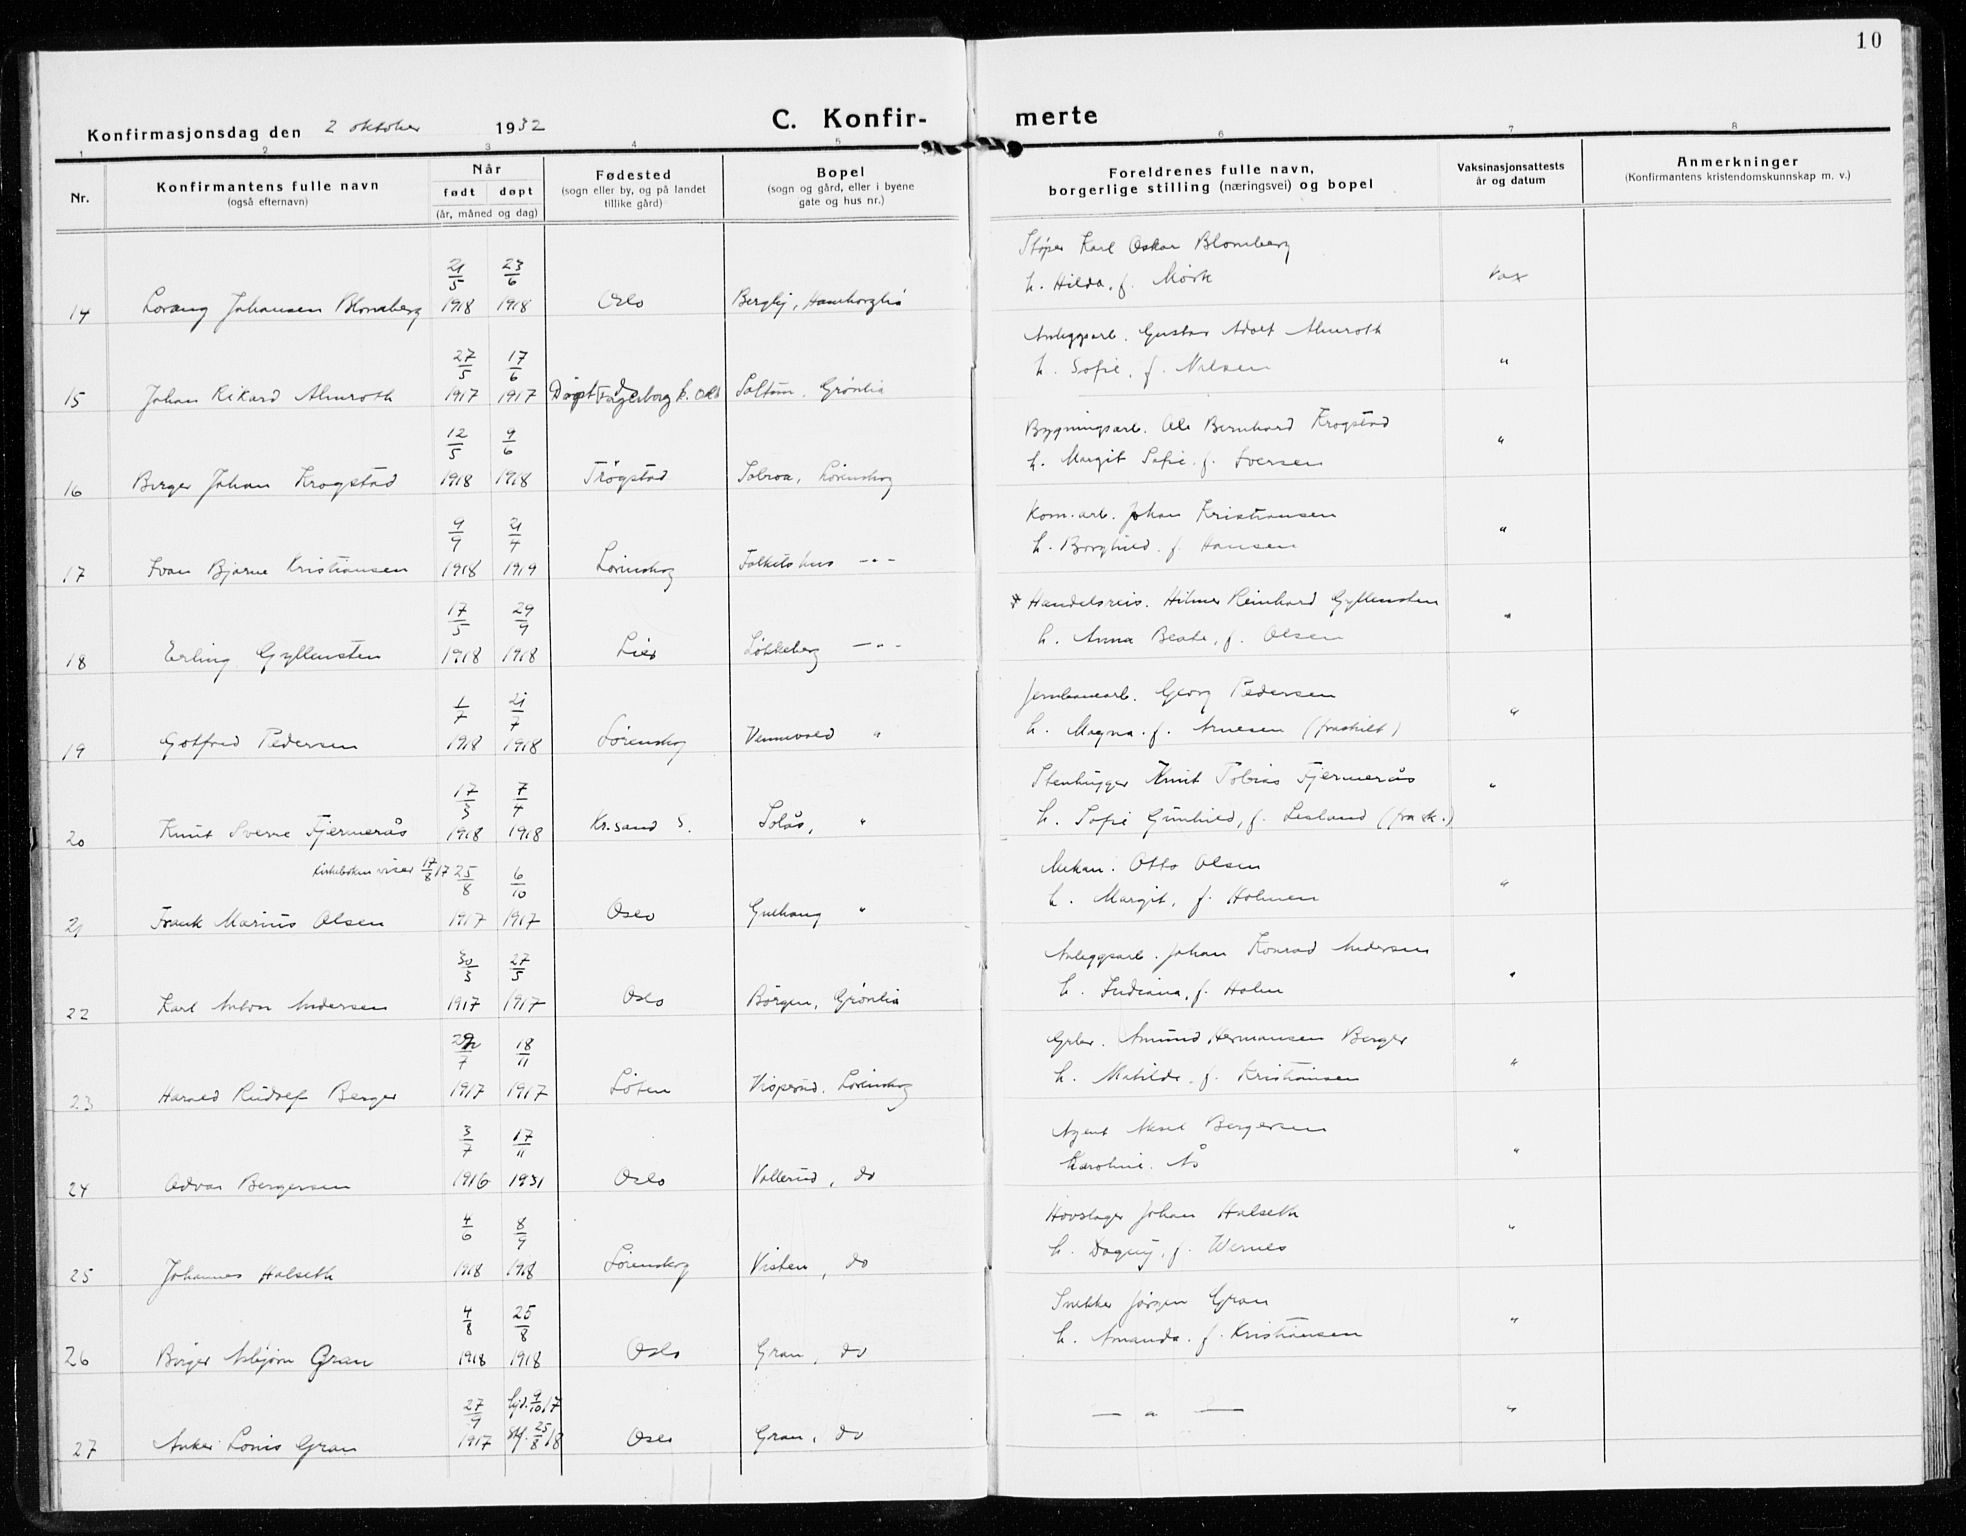 10
C. Konfir- merte
Konfirmasjonsdag den 2 oktober 1932
1 2 3 4 5 6 7 8
Nr.
Konfirmantens fulle navn
(også efternavn)
Når
født døpt
(år, måned og dag)
Fødested
(sogn eller by, og på landet
tillike gård)
Bopel
(sogn og gård, eller i byene
gate og hus nr.)
Foreldrenes fulle navn,
borgerlige stilling (næringsvei) og bopel
Vaksinasjonsattests
år og datum
Anmerkninger
(Konfirmantens kristendomskunnskap m. v.)
21/5 23/6 Støper Karl Oskar Blomberg
h. Hilda, f. Mørk vax
14 Lorang Johansen Blomberg 1918 1918 Oslo Berglij,
27/5 17/6 Anleggsarb. Gustav Adolf Almroth
h. Sofie, f. Nilsen "
15 Johan Rikard Almroth 1917 1917 Døpt Fagerborg k. Oslo Saltum, Grønlia
12/5 9/6 Bygningsarb. Ole Bernhard Krogstad
h. Margit Sofie f. Iversen "
16 Birger Johan Krogstad 1918 1918 Trøgstad Solroa, Lørenskog
9/9 21/4 Kom.arb. Johan Kristiansen
h. Borghild, f. Hansen "
17 Ivan Bjarne Kristiansen 1918 1919 Lørenskog Folkets hus - " -
17/5 29/9 Handelsreis. Hilmer Reinhard Gyllensten
h. Anna Beate, f. Olsen "
18 Erling Gyllensten 1918 1918 Lier Løkkeberg - " -
1/7 21/7 Jernbanearb. Georg Pedersen
h. Magna f. Arnesen (fraskilt) "
19 Gotfred Pedersen 1918 1918 Lørenskog Vennevold "
17/3 7/4 Stenhugger Knut Tobias Fjermerås
h. Sofie Gunhild, f. Lesland (frask.) "
20 Knut Sverre Fjermerås 1918 1918 Kr.sand S. Solås, "
Kirkeboken viser 17/8 17 25/8 6/10 Mekan. Otto Olsen
h. Margit, f. Holmen "
21 Frank Marius Olsen 1917 1917 Oslo Gulhaug "
30/3 27/5 Anleggsarb. Johan Konrad Andersen
h. Indiana, f. Holm "
22 Karl Anton Andersen 1917 1917 Oslo Børgen, Grønlia
18/11 Grbr. Amund Hermansen Berger
h. Matilde, f. Kristiansen "
23 Harald Rudolf Berger 1917 1917 Løten Visperud, Lørenskog
3/7 17/11 Agent Aksel Bergersen
Karoline Ås "
24 Odvar Bergersen 1916 1931 Oslo Vallerud, do
4/6 8/9 Hovslager Johan Halseth
h. Dagny, f. Wernes "
25 Johannes Halseth 1918 1918 Lørenskog Visten, do
4/8 25/8 Snekker Jørgen Gran
h. Amanda f. Kristiansen "
26 Birger Asbjørn Gran 1918 1918 Oslo Gran, do
27/9 hjd. 9/10 17 — " — "
27 Anker Louis Gran 1917 stf. 25/8 18 Oslo Gran, do